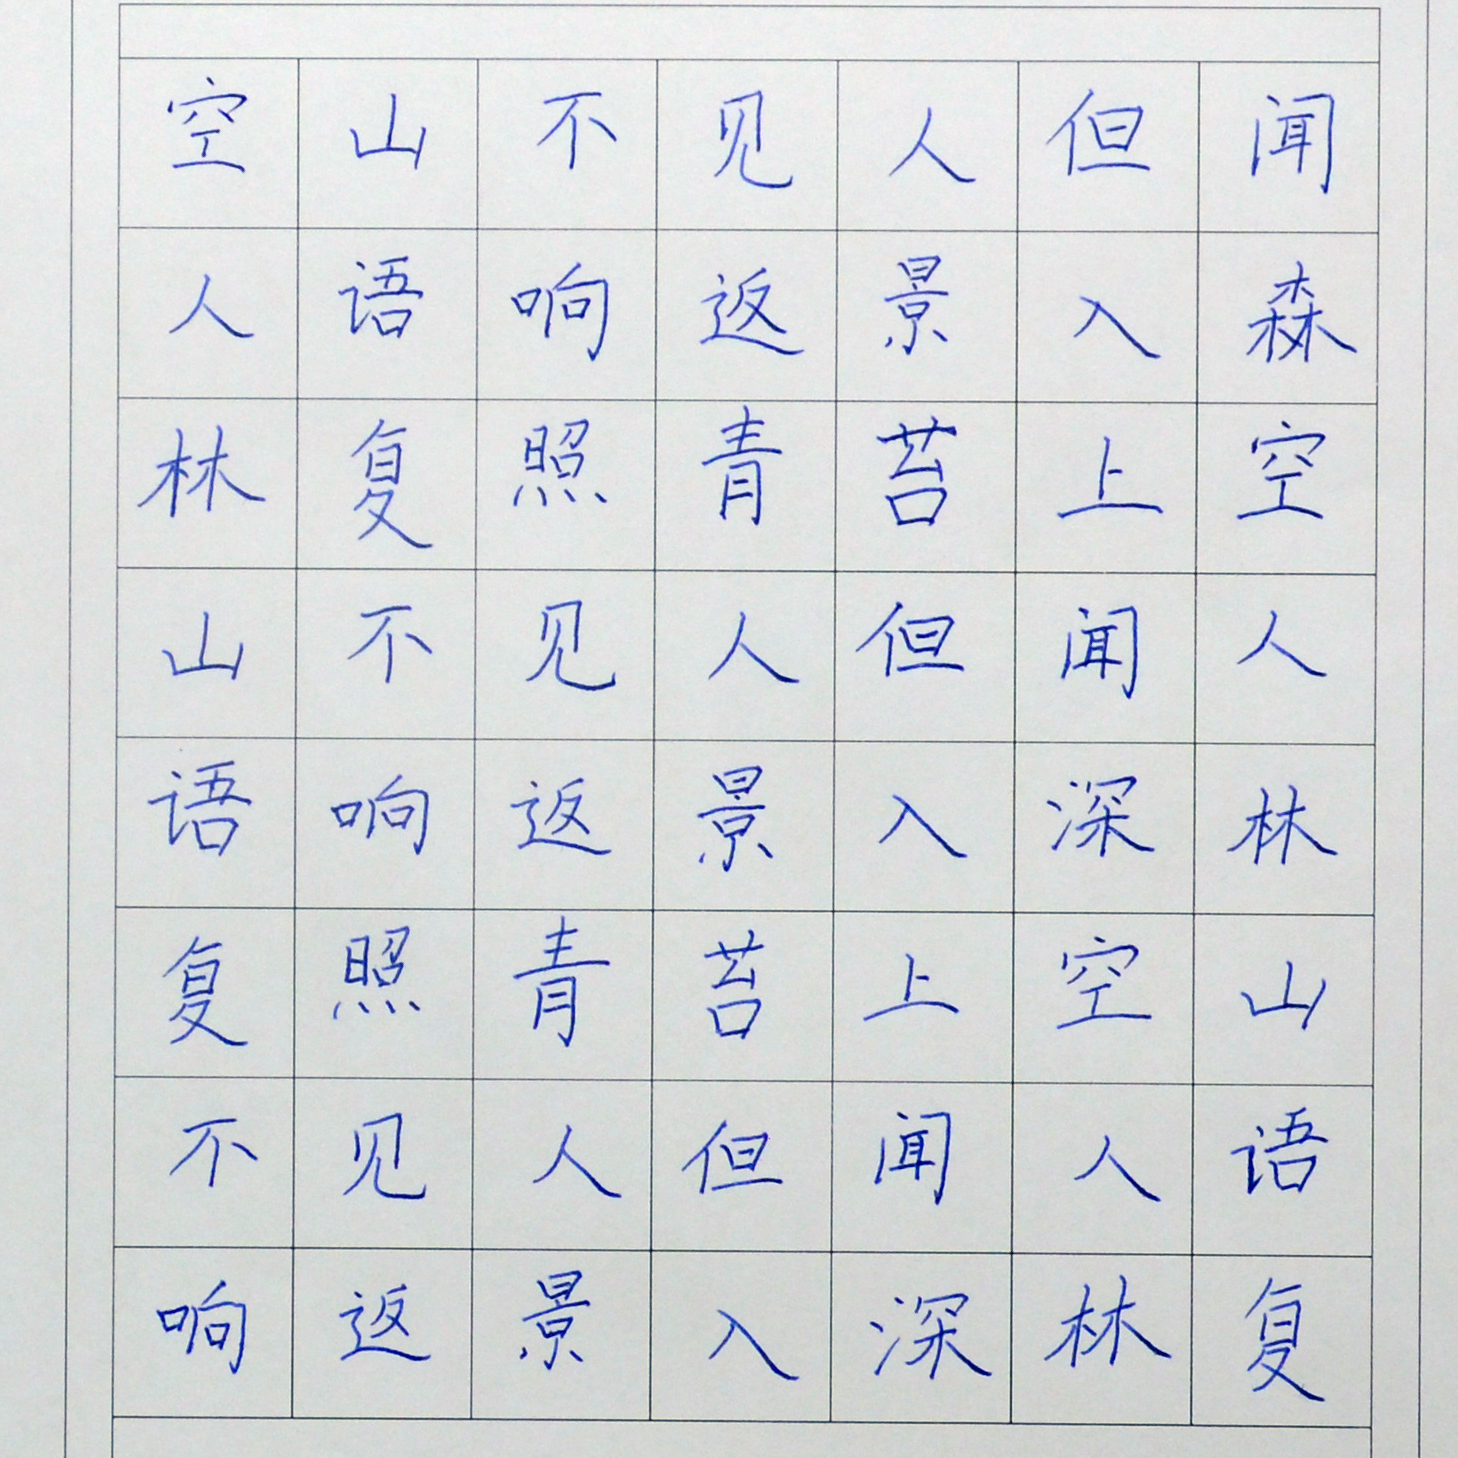 空山不见人但闻
人语响返景入森
林复照青苔上空
山不见人但闻人
语响返景入深林
复照青苔上空山
不见人但闻人语
响返景入深林复